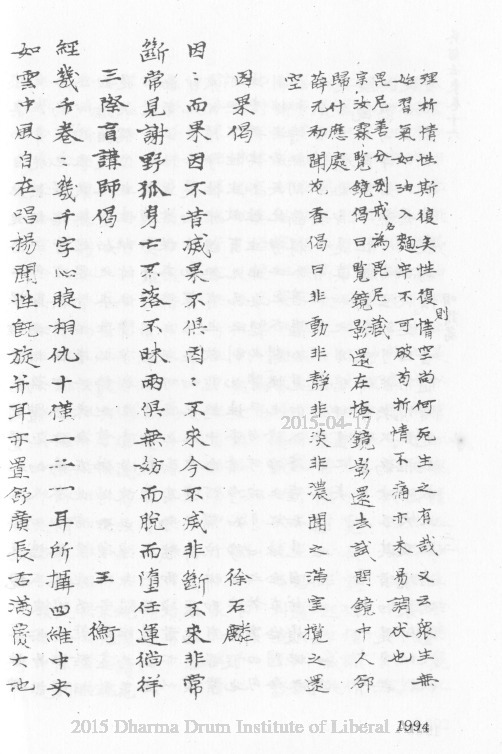 理折情性斯復矣性復則情空尚何死生之有哉又云衆生無
始習氣如油入麵牢不可破苟折情不痛亦未易消伏也
毘尼者別戒名為毘尼藏
宗汝霖覽鏡偈曰覽鏡影還在掩鏡影還去試問鏡中人卻
歸什應處
薛元初聞荷香偈曰非動非靜非淡非濃聞之滿室攬之還
空
因果偈 徐石麟
因:而果因不昔滅果不俱因:不來今不滅非斷不來非常
斷常見謝野狐身亡不落不昧兩俱無妨而脫而墮任運徜徉
三際盲講師偈 王衡
經幾千卷:幾千字心眼相仇十僅一二一耳所攝四維中央
如雲中風自在唱揚聞性旣旋并耳亦置舒廣長舌滿震大地
2015-04-17
2015 Dharma Drum Institute of Liberal
1994